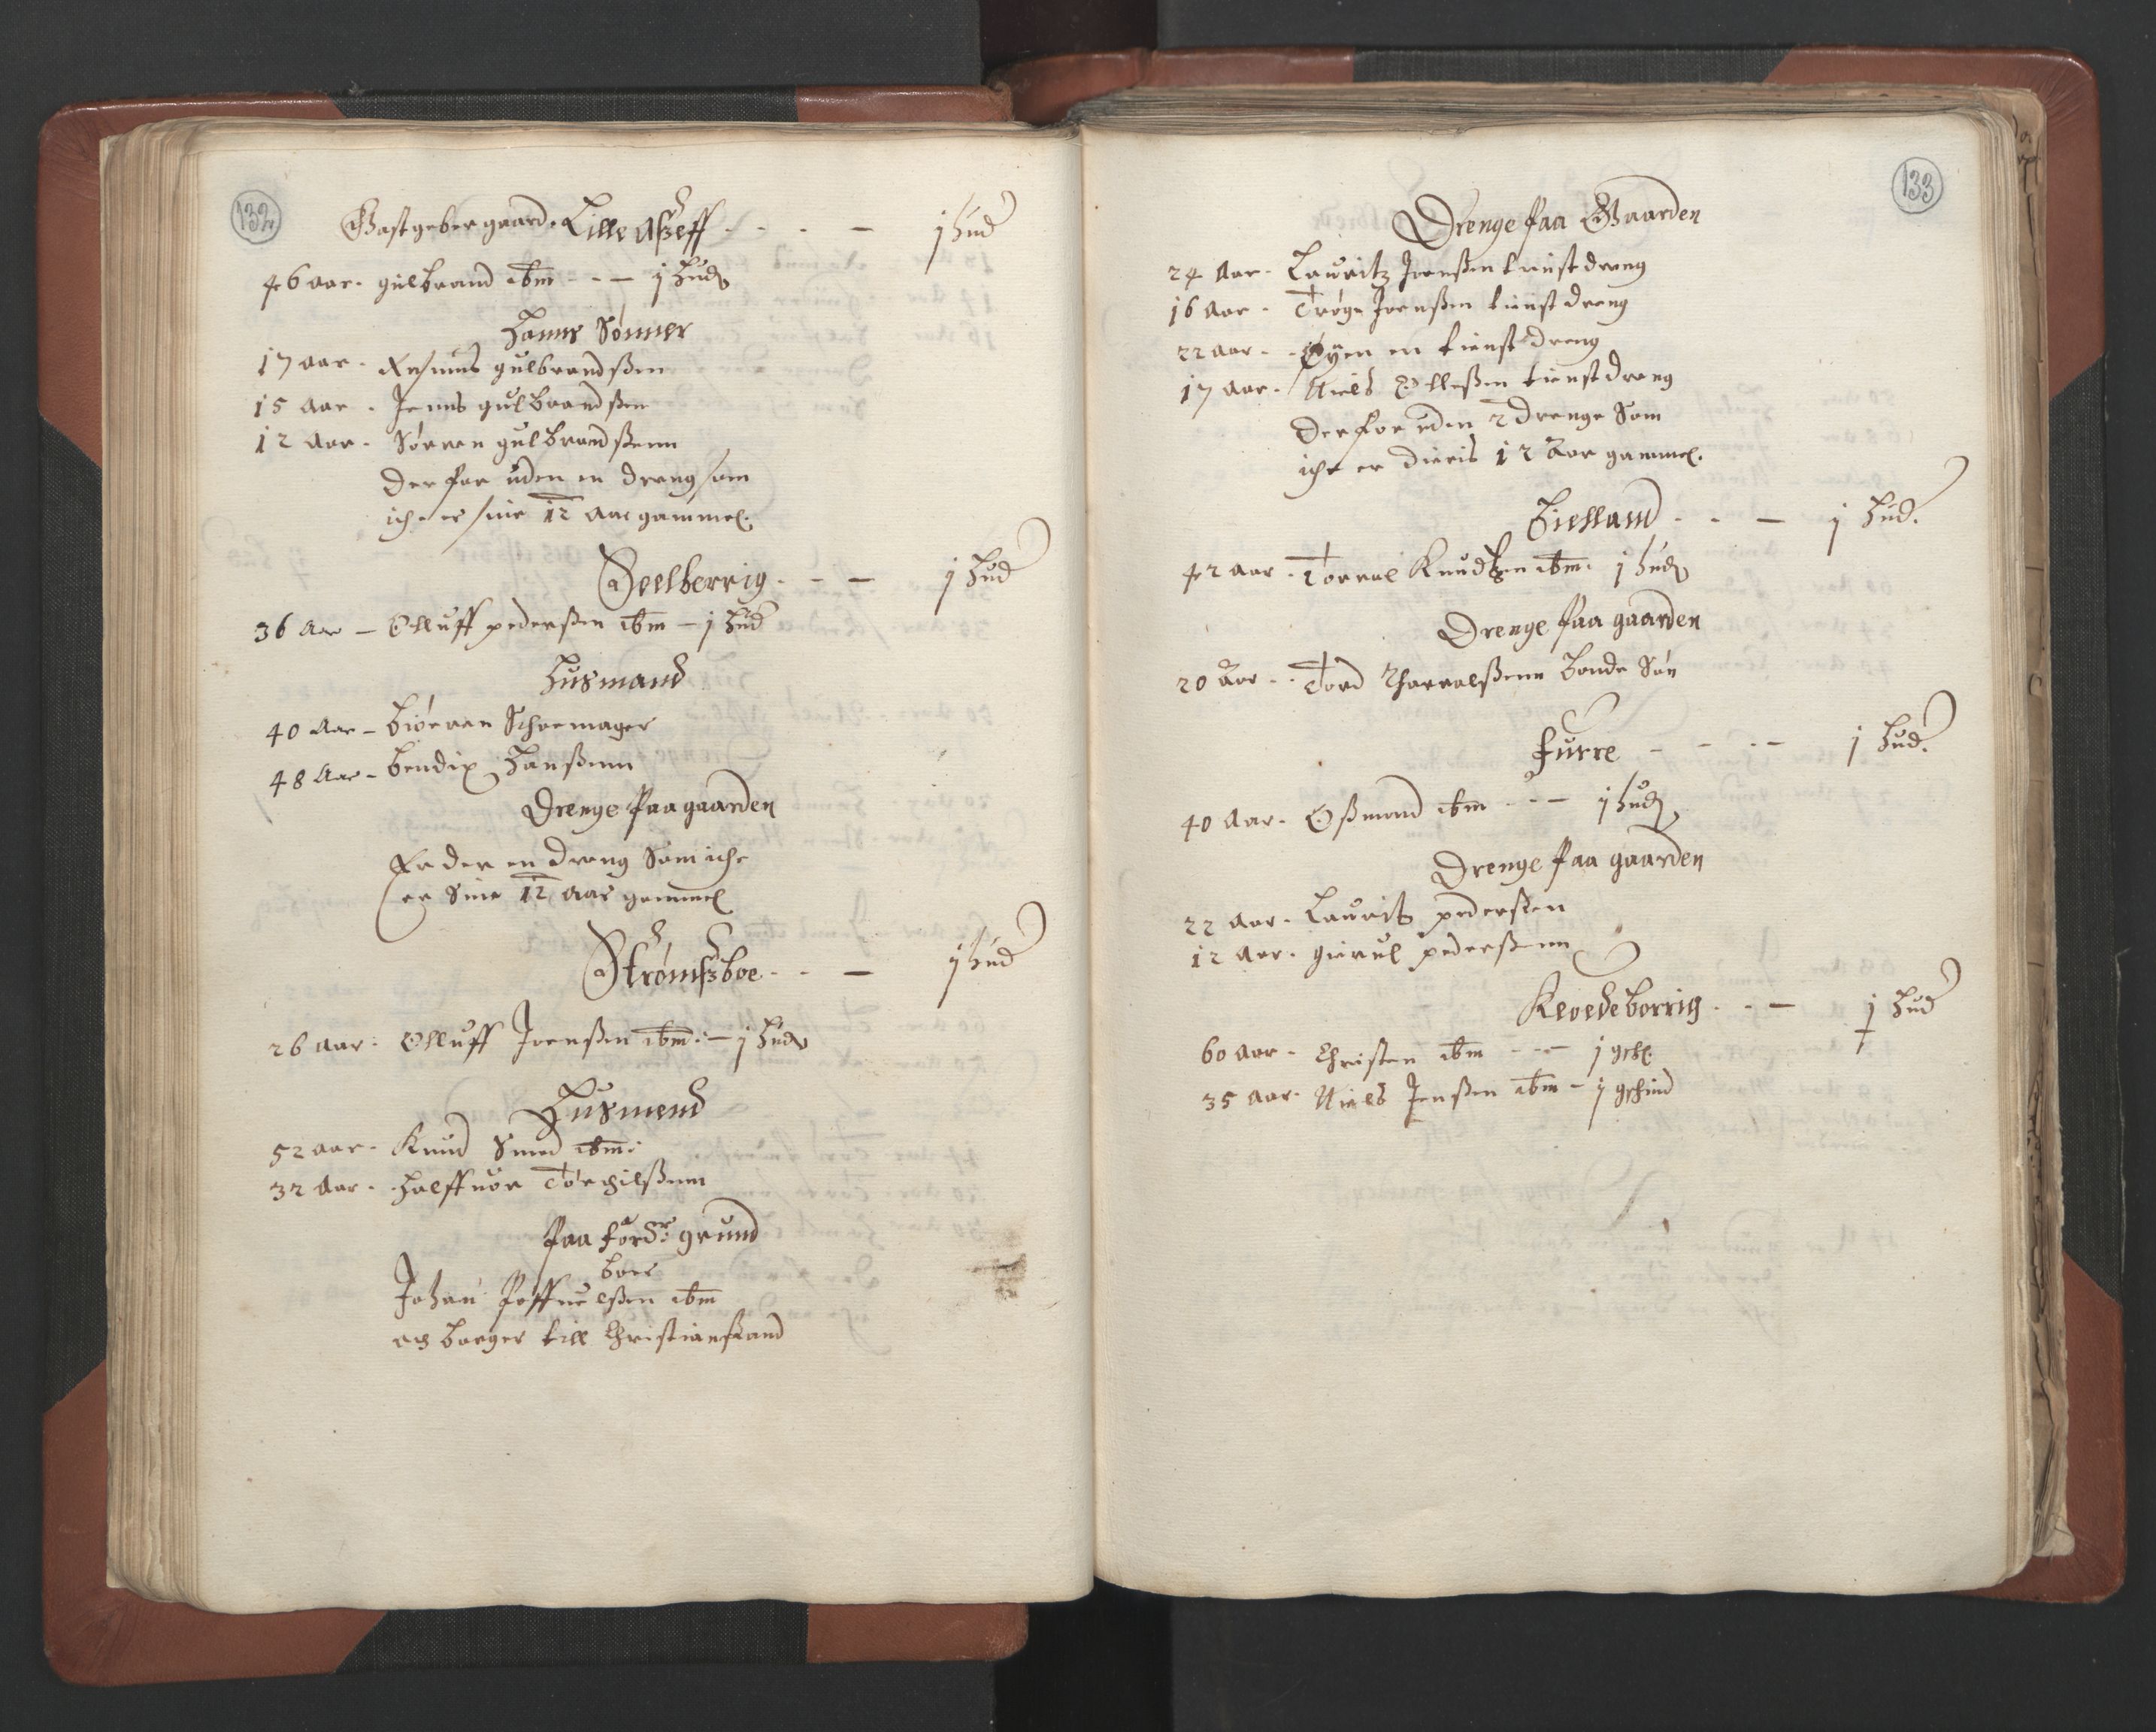 132
Gastgebergaard. Lille Aßeff - - - - 1 hud
46 aar. gulbrand ibm - - - 1 hud
Hanns Sønner
17 aar. Rasmus gulbrandßen
15 aar. Jenns gulbrandßen
12 aar. Sørren gulbrandßenn
Der for uden en dreng som
iche er sine 12 aar gammel.
Seelberrig - - - 1 hud
36 Aar - Olluff pederßen ibm - 1 hud
Husmand
40 Aar - biøren Schoemager
48 Aar - bendix Hanßenn
Drenge paa gaarden
Er der en dreng Som iche
er Sine 12 aar gammel
Strømsboe - - - 1 hud
26 aar. Olluff Joenßen ibm - 1 hud
Husmend
52 aar. Knud Smed ibm:
32 Aar. Halffuor Torgilßenn
paa grund
boer
Johan ibm
er borger till Christianßand
133
Drenge paa Gaarden
24 Aar. Lauritz Joenßen tienst dreng
16 Aar. Joenßen tienst dreng
22 aar. Øyen en tienst dreng
17 aar. Niels Olleßen tienst dreng
Der for uden 2 drenge Som
iche er dieris 12 Aar gammel.
Bielland - - - 1 hud.
42 aar. Torral Knudßen ibm. 1 hud
Drenge paa gaarden
20 Aar. Tord Tharralßenn bonde Søn
Furre - - - 1 hud.
40 Aar. Oßmond ibm - - - 1 hud
Drenge paa gaarden
22 Aar. Laurits pederßen
12 Aar. gierul pederßenn
Kevedeborrig - - - 1 hud
60 aar. Christen ibm - - - 1 gch.
35 aar. Niels Jenßen ibm - 1 gchind